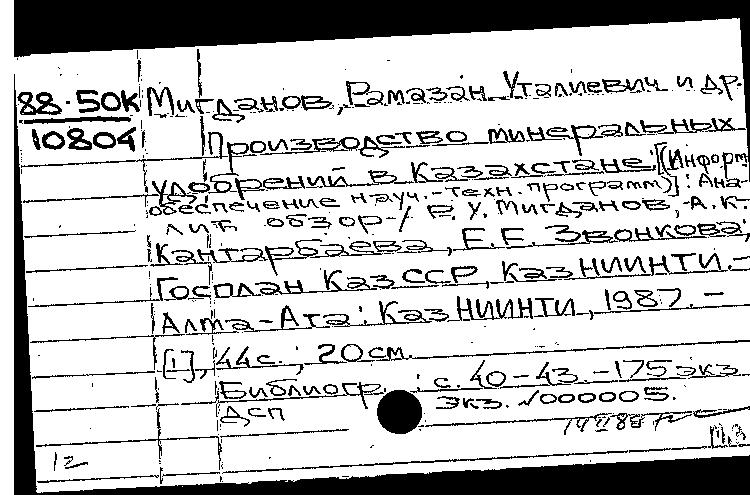 88-50К Мигданов, Рамазан Уталиевич и др.
10804 Производство минеральных
удобрений в Казахстане: [(Информ.
обеспечение науч.-техн. программ)]: Ана-
лит. обзор / Р. У. Мигданов, А. К.
Кантарбаева, Е. Е. Звонкова;
Госплан КазССР, КазНИИНТИ. –
Алма-Ата: КазНИИНТИ, 1987. –
[1], 44с.; 20см.
Библиогр.: с. 40-43. – 175 экз.
ДСП Экз. №000005.
12 М.З